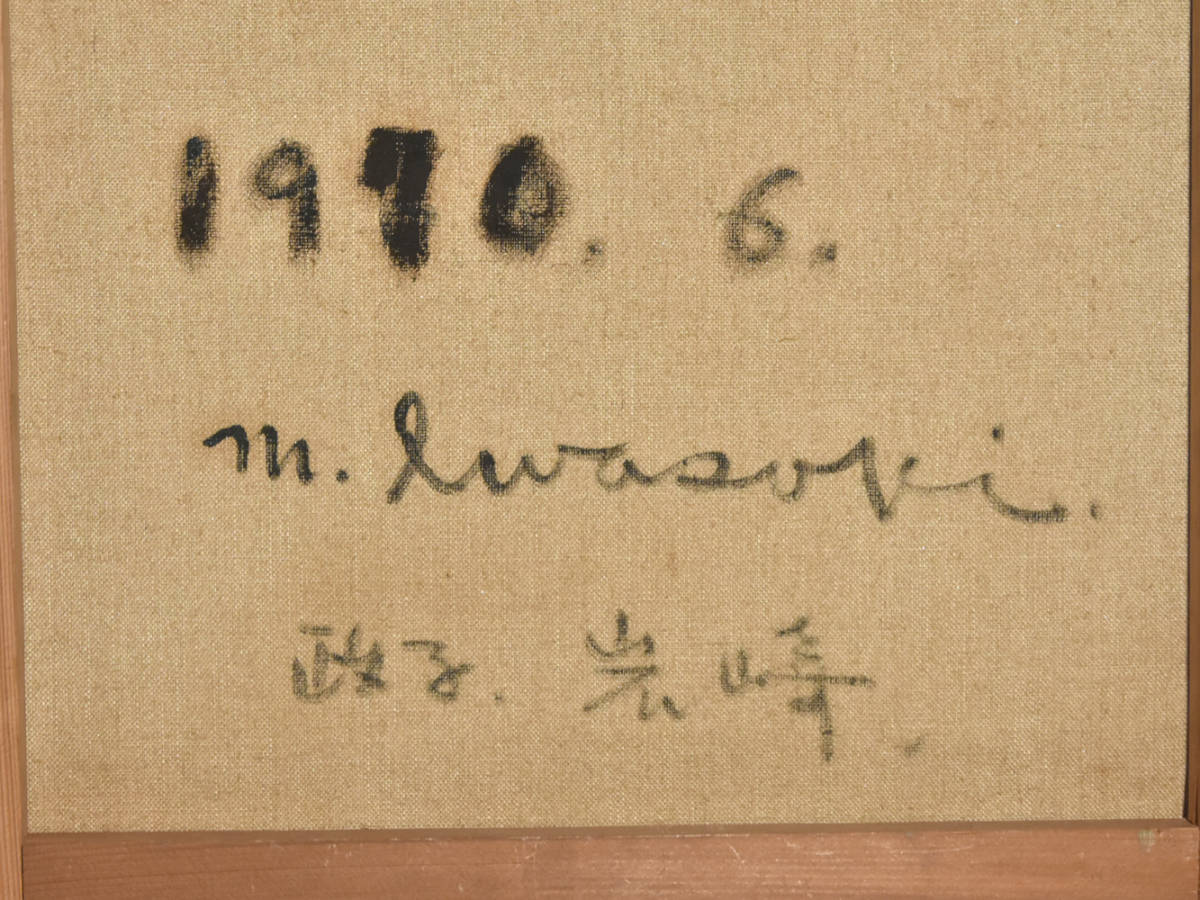 1970. 6.
M. Iwasaki.
政子. 岩崎.